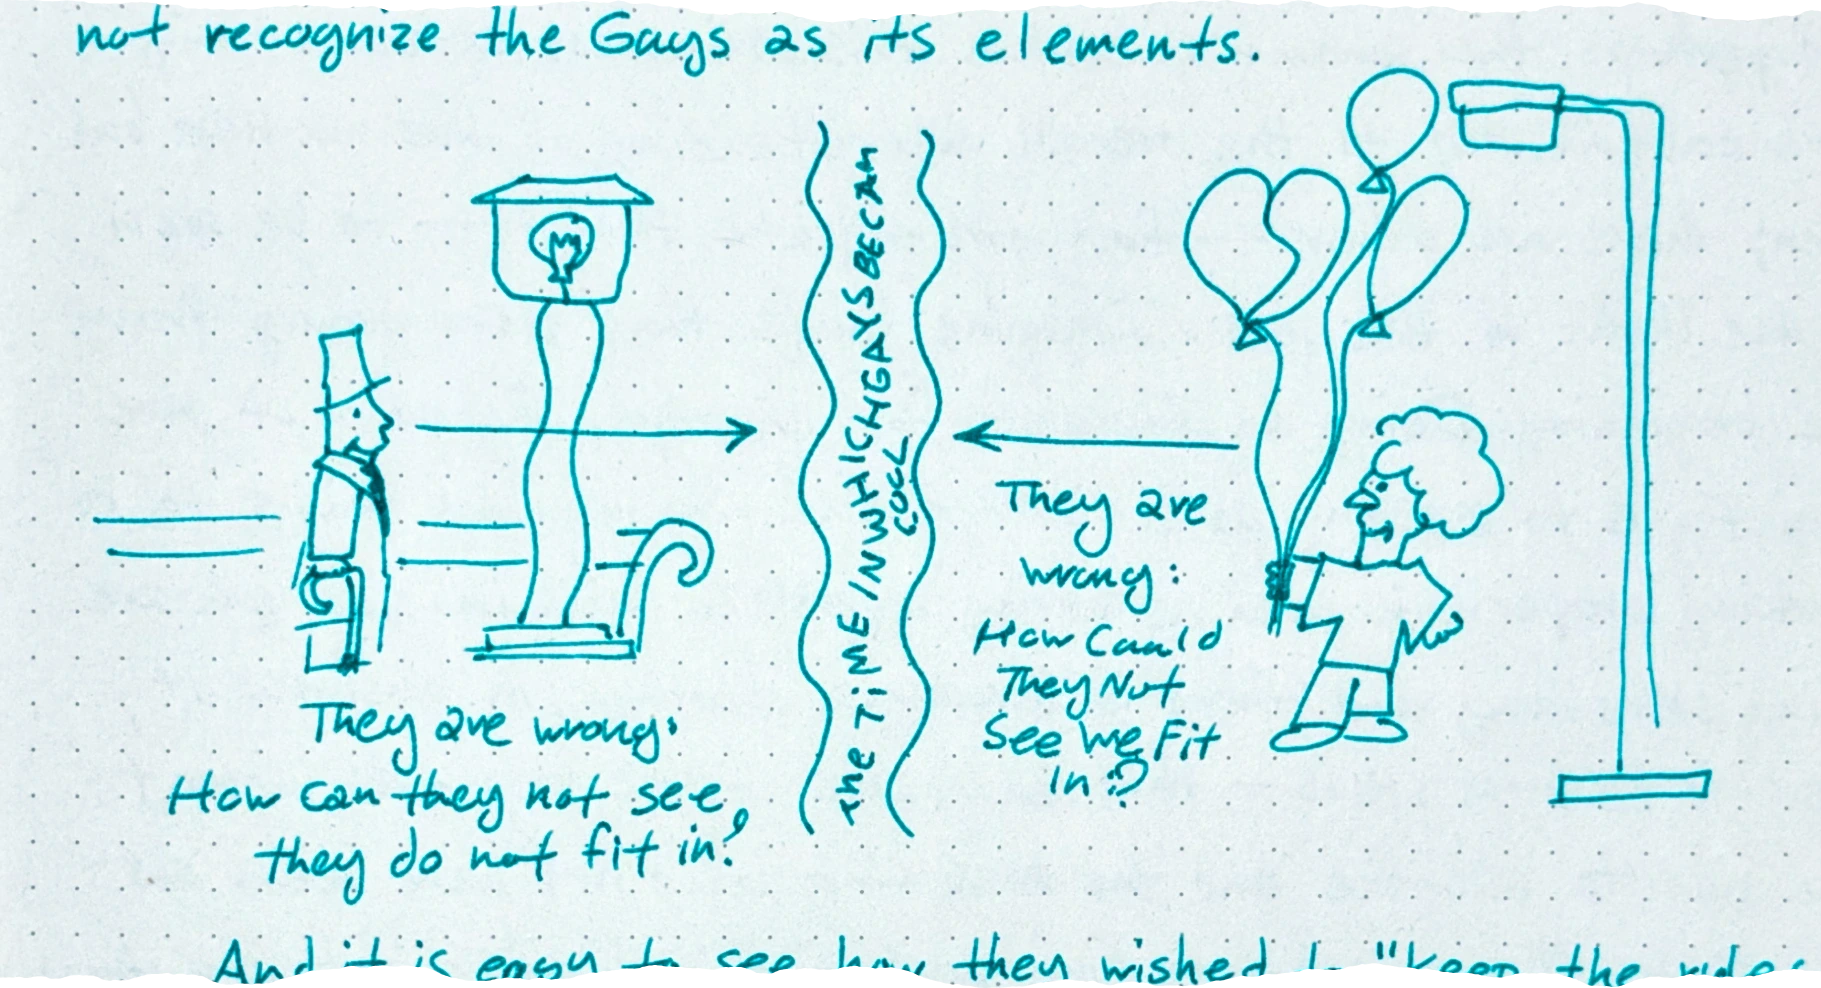 not recognize the Gays as its elements.
THE TIME IN WHICH GAYS BECAM
COOL
They are
wrong:
How Could
They Not
See We Fit
In?
They are wrong:
How can they not see,
they do not fit in?
And it is easy to see how they wished to "keep the rules